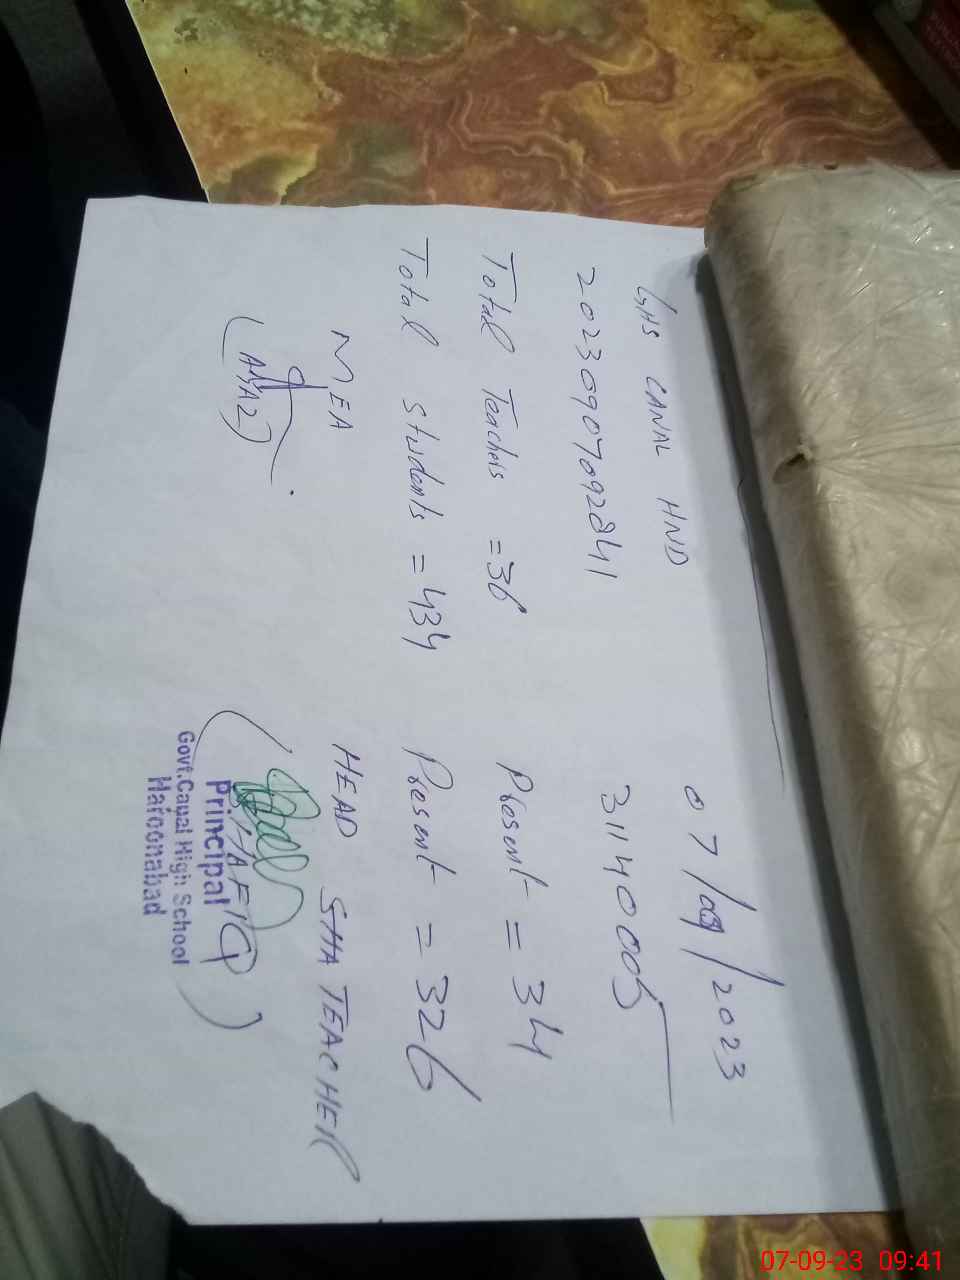 GHS CANAL HND 07/09/2023
20230907092841 31140005
Total Teachers = 36 Present = 34
Total Students = 434 Present = 326
MEA HEAD TEACHER
(AYAZ) (HAFIQ)
Principal
Govt.Canal High School
Haroonabad
07-09-23 09:41